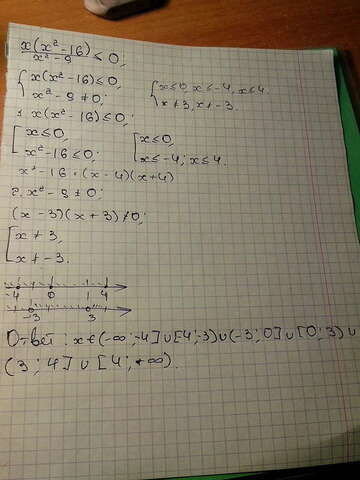 x(x²-16)/x²-9 ≤ 0;
{ x(x²-16) ≤ 0, x²-9 ≠ 0; { x ≤ 0, x ≤ -4, x ≤ 4. x ≠ 3, x ≠ -3.
1. x(x²-16) ≤ 0;
[ x ≤ 0, x²-16 ≤ 0; [ x ≤ 0, x ≤ -4; x ≤ 4.
x²-16 = (x-4)(x+4)
2. x²-9 ≠ 0;
(x-3)(x+3) ≠ 0;
[ x ≠ 3, x ≠ -3.
-4 0 4
-3 3
Ответ: x ∈ (-∞; -4] ∪ [4; -3) ∪ (-3; 0] ∪ [0; 3) ∪
(3; 4] ∪ [4; +∞).